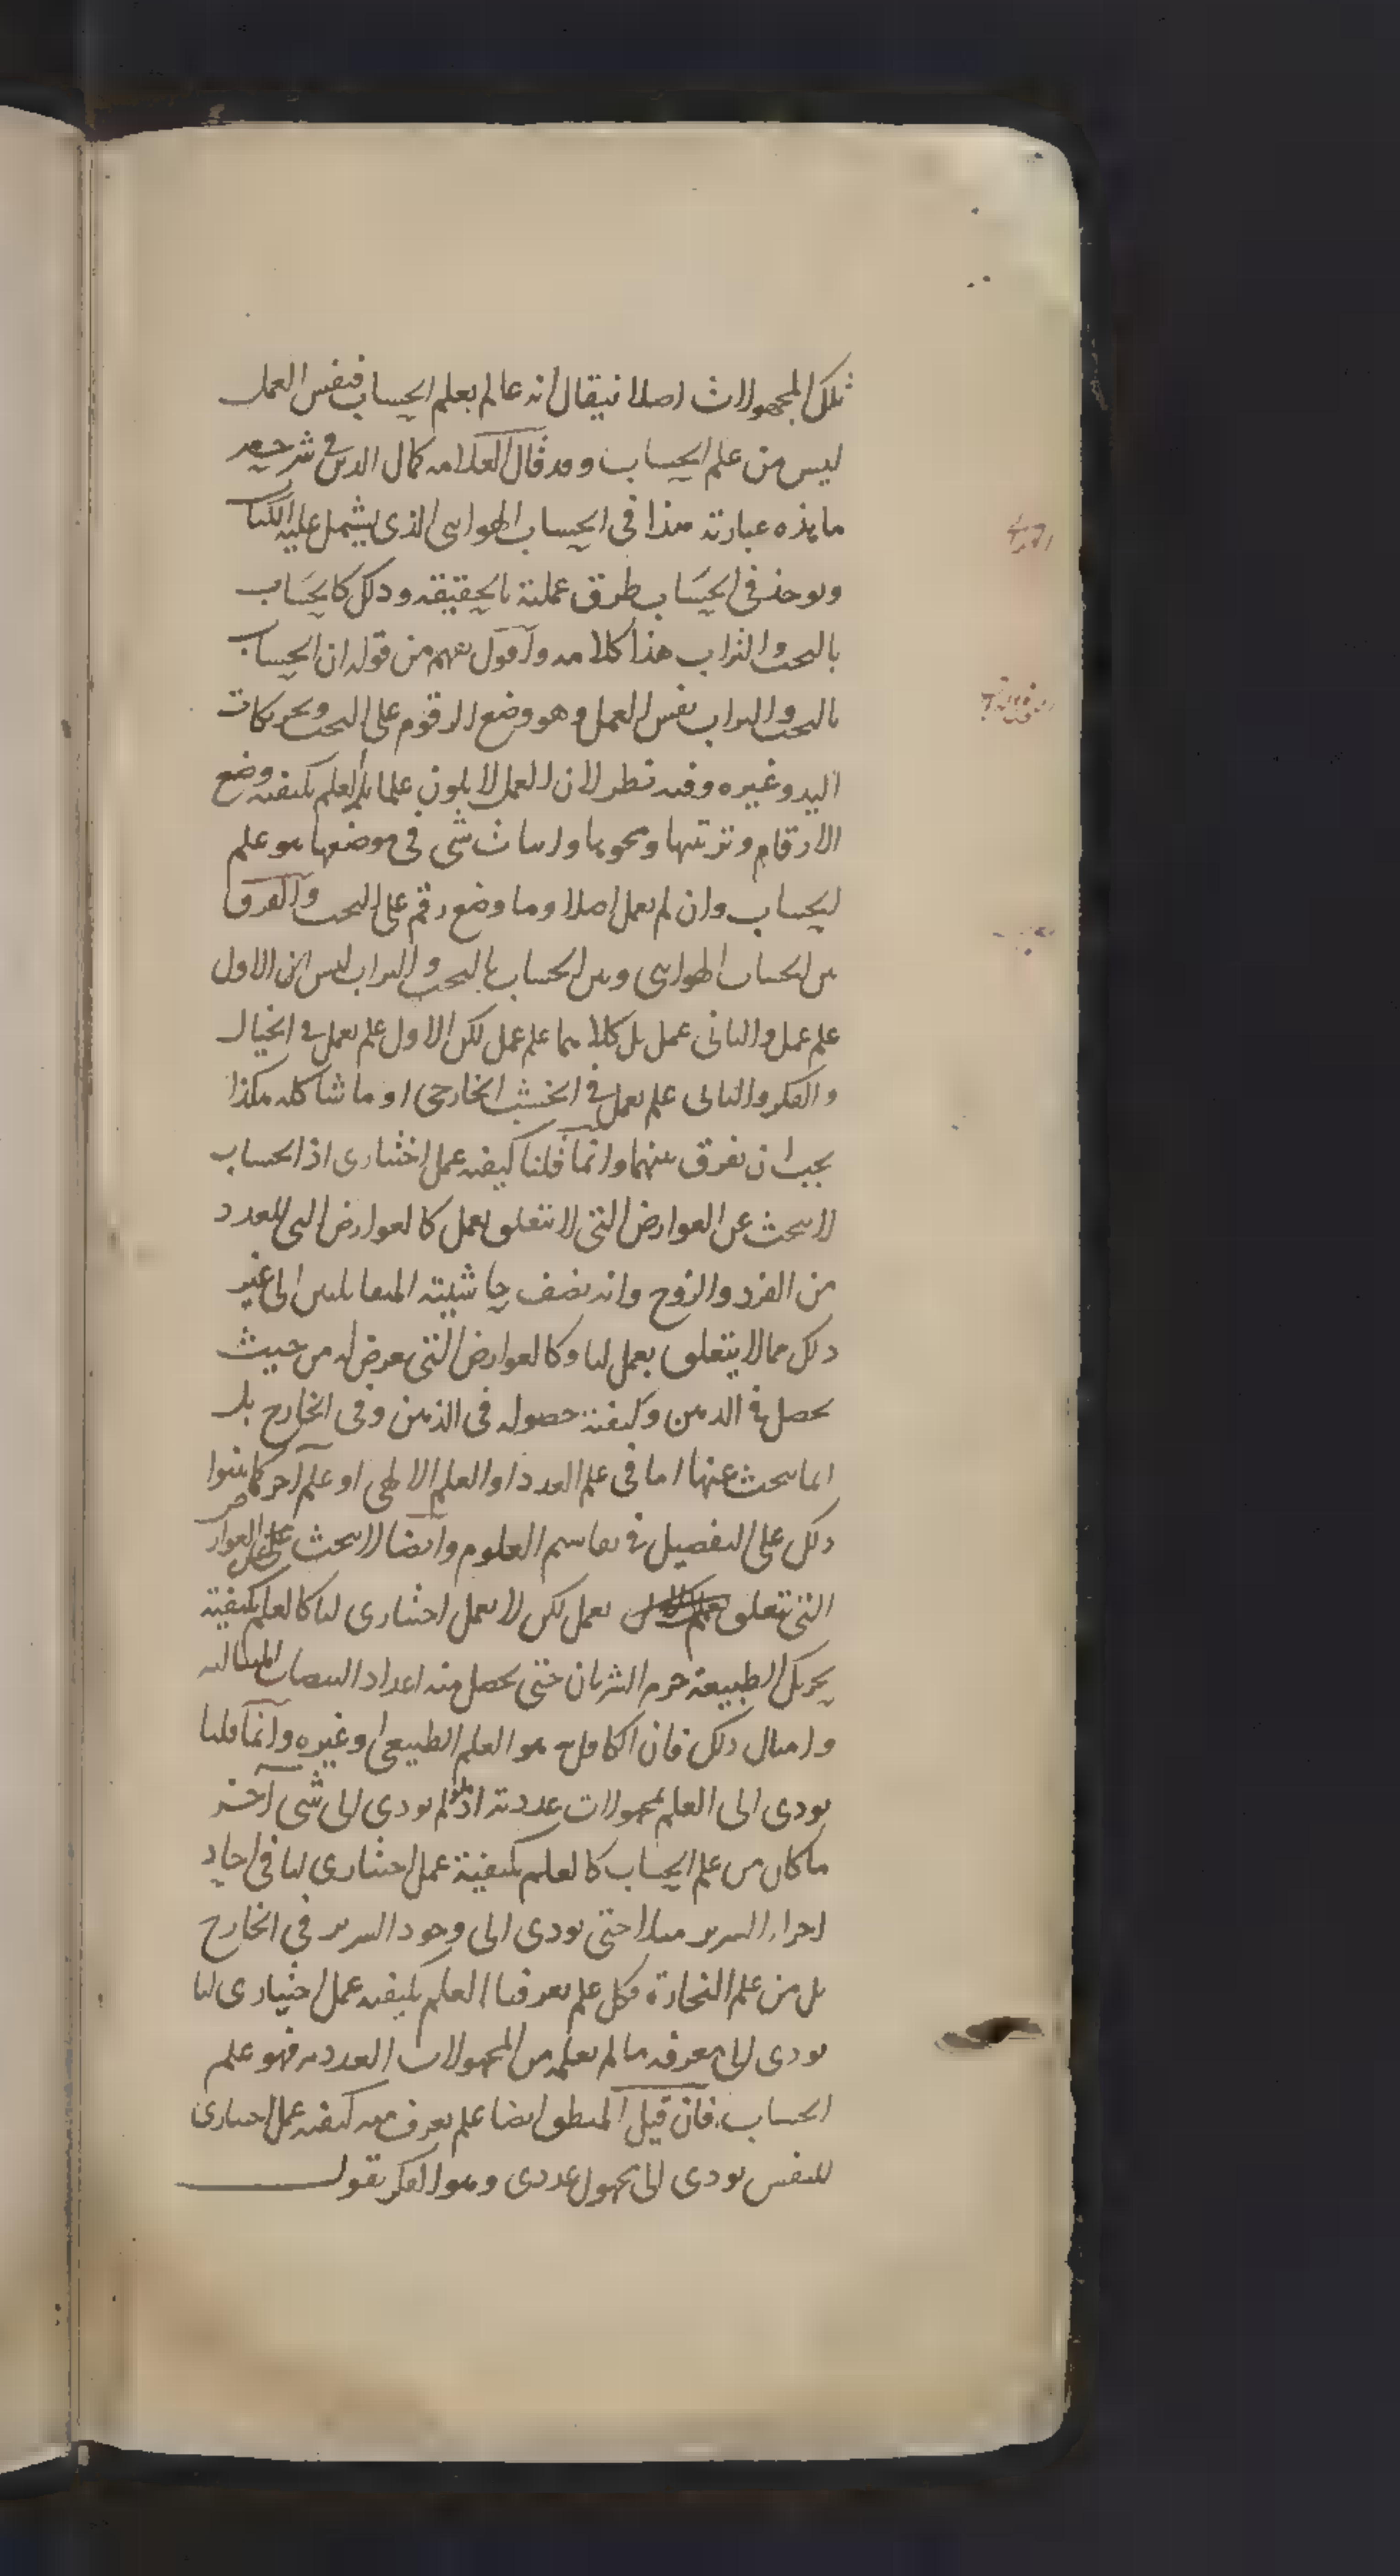 تلك المجهولات اصلا فيقال انه عالم بعلم الحساب فنفس العمل
ليس من علم الحساب وقد قال العلامه كمال الدين فى شرحه
ما هذه عبارته هذا فى الحساب الهوايى الذى يشمل عليه الكتاب
ويوخذ فى الحساب طرق عملية بالحقيقه وذلك كالحساب
بالتخت والتراب هذا كلامه واقول يفهم من قوله ان الحساب
بالتخت والتراب نفس العمل وهو وضع الرقوم على التخت وتحريكات
اليد وغيره وفيه نظر لان العمل لا يكون علما بل العلم بكيفيه وضع
الارقام وترتيبها ومحوها واثبات شى فى موضعها هو علم
الحساب وان لم يعمل اصلا وما وضع رقم على التخت والفرق
بين الحساب الهوايى وبين الحساب بالتخت والتراب ليس ان الاول
علم عمل والثانى عمل بل كلاهما علم عمل لكن الاول علم بعمل فى الخيال
والفكر والثانى علم بعمل فى الخشب الخارجى او ما شاكله هكذا
يجب ان نفرق بينهما وانما قلنا كيفيه عمل اختيارى اذ الحساب
لا يبحث عن العوارض التى لا تتعلق بعمل كالعوارض التى للعدد
من الفرد والزوج وانه نصف حاشيته المتقابلتين الى غير
ذلك مما لا يتعلق بعمل لنا وكالعوارض التى تعرض له من حيث
يحصل فى الذهن وكيفية حصوله فى الذهن وفى الخارج بل
انما يبحث عنها اما فى علم العدد او العلم الالهى او علم آخر كما بينوا
ذلك على التفصيل فى تقاسيم العلوم وايضا لا يبحث عن العوارض
التى تتعلق بعمل لكن لا بعمل اختيارى لنا كالعلم بكيفية
تحريك الطبيعة جرم الشريان حتى يحصل منه اعداد النبضات المتتاليه
وامثال ذلك فان الكافل به هو العلم الطبيعى او غيره وانما قلنا
يودى الى العلم بمجهولات عددية اذ لو لم يودى الى شى آخر
ما كان من علم الحساب كالعلم بكيفية عمل اختيارى لنا فى ايجاد
اجزاء السرير مثلا حتى يودى الى وجود السرير فى الخارج
بل من علم النجارة فكل علم يعرفنا العلم بكيفيه عمل اختيارى لنا
يودى الى معرفه ما لم نعلمه من المجهولات العدديه فهو علم
الحساب فان قيل المنطق ايضا علم يعرف منه كيفيه عمل اختيارى
للنفس يودى الى مجهول عددى وهو الفكر نقول